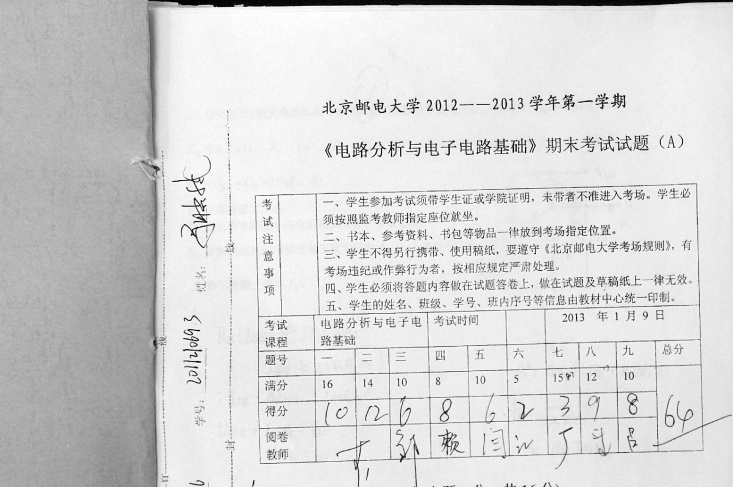 北京邮电大学2012——2013学年第一学期
《电路分析与电子电路基础》期末考试试题（A）
考试注意事项
一、学生参加考试须带学生证或学院证明，未带者不准进入考场。学生必
须按照监考教师指定座位就坐。
二、书本、参考资料、书包等物品一律放到考场指定位置。
三、学生不得另行携带、使用稿纸，要遵守《北京邮电大学考场规则》，有
考场违纪或作弊行为者，按相应规定严肃处理。
四、学生必须将答题内容做在试题答卷上，做在试题及草稿纸上一律无效。
五、学生的姓名、班级、学号、班内序号等信息由教材中心统一印制。
考试课程 电路分析与电子电路基础 考试时间 2013 年 1 月 9 日
题号 一 二 三 四 五 六 七 八 九 总分
满分 16 14 10 8 10 5 15 12 10
得分 10 12 6 8 6 2 3 9 8 64
阅卷教师 赖 闫
姓名：
学号：
线
封